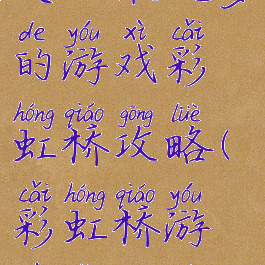 de yóu xì cǎi
的游戏彩
hóng qiáo gōng lüè
虹桥攻略(
cǎi hóng qiáo yóu
彩虹桥游